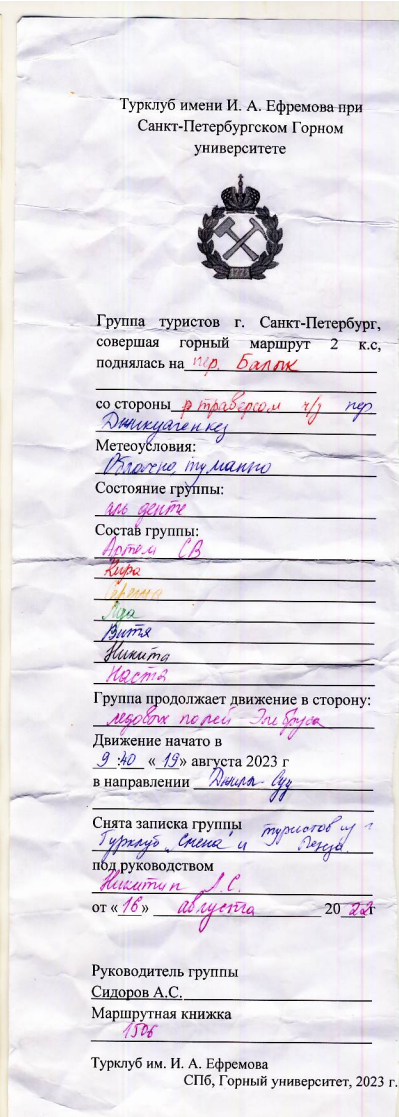 Турклуб имени И. А. Ефремова при
Санкт-Петербургском Горном
университете
1773
Группа туристов г. Санкт-Петербург,
совершая горный маршрут 2 к.с,
поднялась на пер. Балык
со стороны траверсом ч/з пер
Джикаугенкез
Метеоусловия:
Облачно, туманно
Состояние группы:
аль денте
Состав группы:
Артём СВ
Кира
Сержа
Лда
Витя
Никита
Настя
Группа продолжает движение в сторону:
ледовых полей Эльбруса
Движение начато в
9:40 « 19» августа 2023 г
в направлении Джилы-Су
Снята записка группы туристов из г
Турклуб "Смена" и Пенза.
под руководством
Никитин Л.С.
от «16» августа 2022г
Руководитель группы
Сидоров А.С.
Маршрутная книжка
1506
Турклуб им. И. А. Ефремова
СПб, Горный университет, 2023 г.